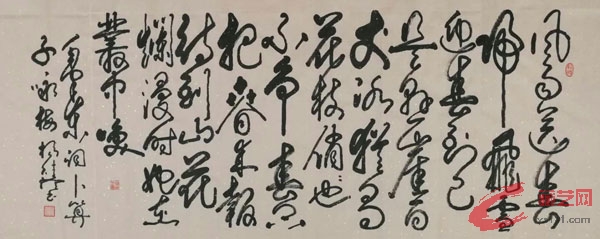 风雨送春
归飛雪
迎春到已
是悬崖百
丈冰犹有
花枝俏也
不争春只
把春来報
待到山花
爛漫时她在
叢中咲
毛泽东词卜算
子咏梅
艺网